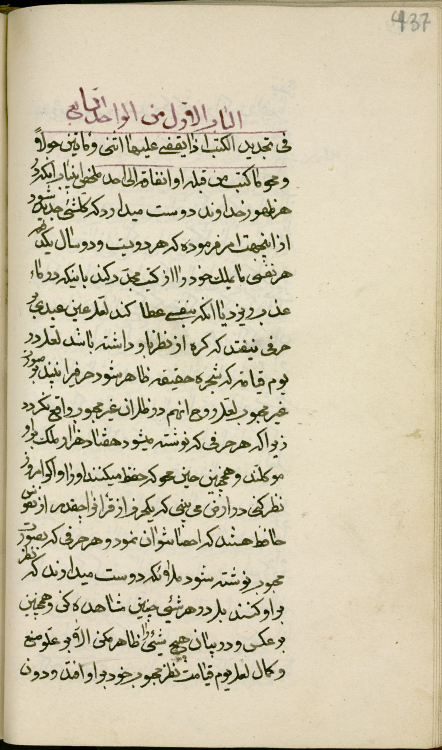 437
الباب الاول من الواحد السابع
فی تجدید الکتب اذا یقضی علیها اثنی و مأتین حولا
و محو ما کتب من قبل او انفاقه الی احد ملخص این باب آنکه در
هر ظهور خداوند دوست میدارد که کلشیء جدید شود
از این جهت امر فرموده که هر دویست و دو سال یک دفعه
هر نفسی ما یملک خود را از کتب مجدد کند باینکه در ماء
عذب ریزد یا آنکه بنفسی عطا کند لعل عین عبدی بر
حرفی نیفتد که کره از نظر باو داشته باشد لعل در
یوم قیامت که شجره حقیقت ظاهر شود حرف اثبات بصورت
غیر محبوب لعل روح آنهم در ظل آن غیر محبوب واقع نگردد
زیرا که هر حرفی که نوشته میشود هفتاد هزار ملک بر او
موکلند و همچنین حین محو که حفظ میکنند او را و اگر امروز
نظر کنی در ارض می بینی که یک حرف از قرآن را چقدر از نفوس
حافظ هستند که احصا نتوان نمود و هر حرفی که بصورت
محبوب نوشته شود ملائکه دوست میدارند که نظر
بر او کنند بل در هر شیئی چنین مشاهده کن و همچنین
بر عکس و در بیان هیچ شیئی را ظاهر مکن الا بر علو صنع
و کمال لعل یوم قیامت نظر محبوب خود بر او افتد و دون